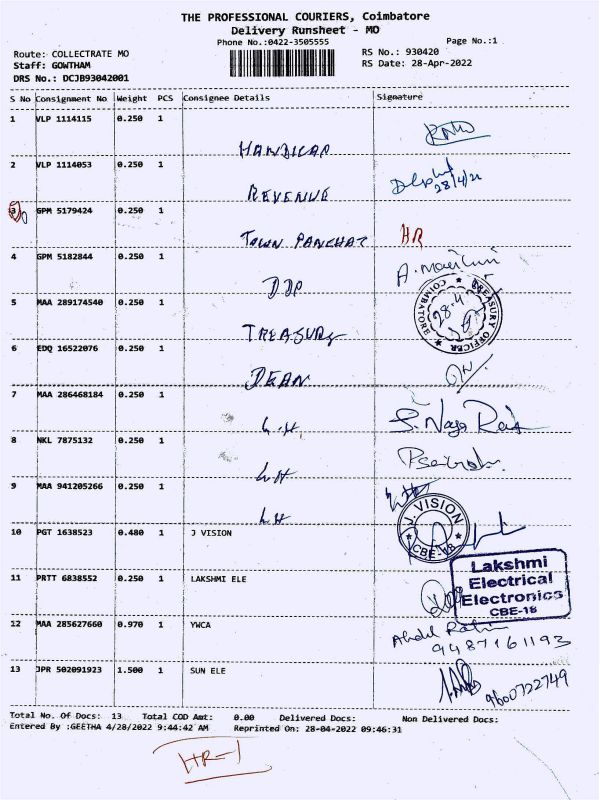 THE PROFESSIONAL COURIERS, Coimbatore
Delivery Runsheet - MO
Phone No.:0422-3505555
Page No.:1
Route: COLLECTRATE MO
RS No.: 930420
Staff: GOWTHAM
RS Date: 28-Apr-2022
DRS No.: DCJB93042001
S No Consignment No Weight PCS Consignee Details Signature
1 VLP 1114115 0.250 1
HANDICAP
2 VLP 1114053 0.250 1
REVENUE 28/4/22
3 GPM 5179424 0.250 1
TOWN PANCHAT HR
4 GPM 5182844 0.250 1
DDP
5 MAA 289174540 0.250 1
COIMBATORE TREASURY OFFICER
28.4
TREASURY
6 EDQ 16522076 0.250 1
DEAN
7 MAA 286468184 0.250 1
L.H S. Naga Raj
8 NKL 7875132 0.250 1
LH
9 MAA 941205266 0.250 1
LH
J. VISION
CBE-18
10 PGT 1638523 0.480 1 J VISION
Lakshmi
Electrical
Electronics
CBE-18
11 PRTT 6838552 0.250 1 LAKSHMI ELE
12 MAA 285627660 0.970 1 YWCA
9487161193
13 JPR 502091923 1.500 1 SUN ELE
9600722749
Total No. Of Docs: 13 Total COD Amt: 0.00 Delivered Docs: Non Delivered Docs:
Entered By :GEETHA 4/28/2022 9:44:42 AM Reprinted On: 28-04-2022 09:46:31
HR-1